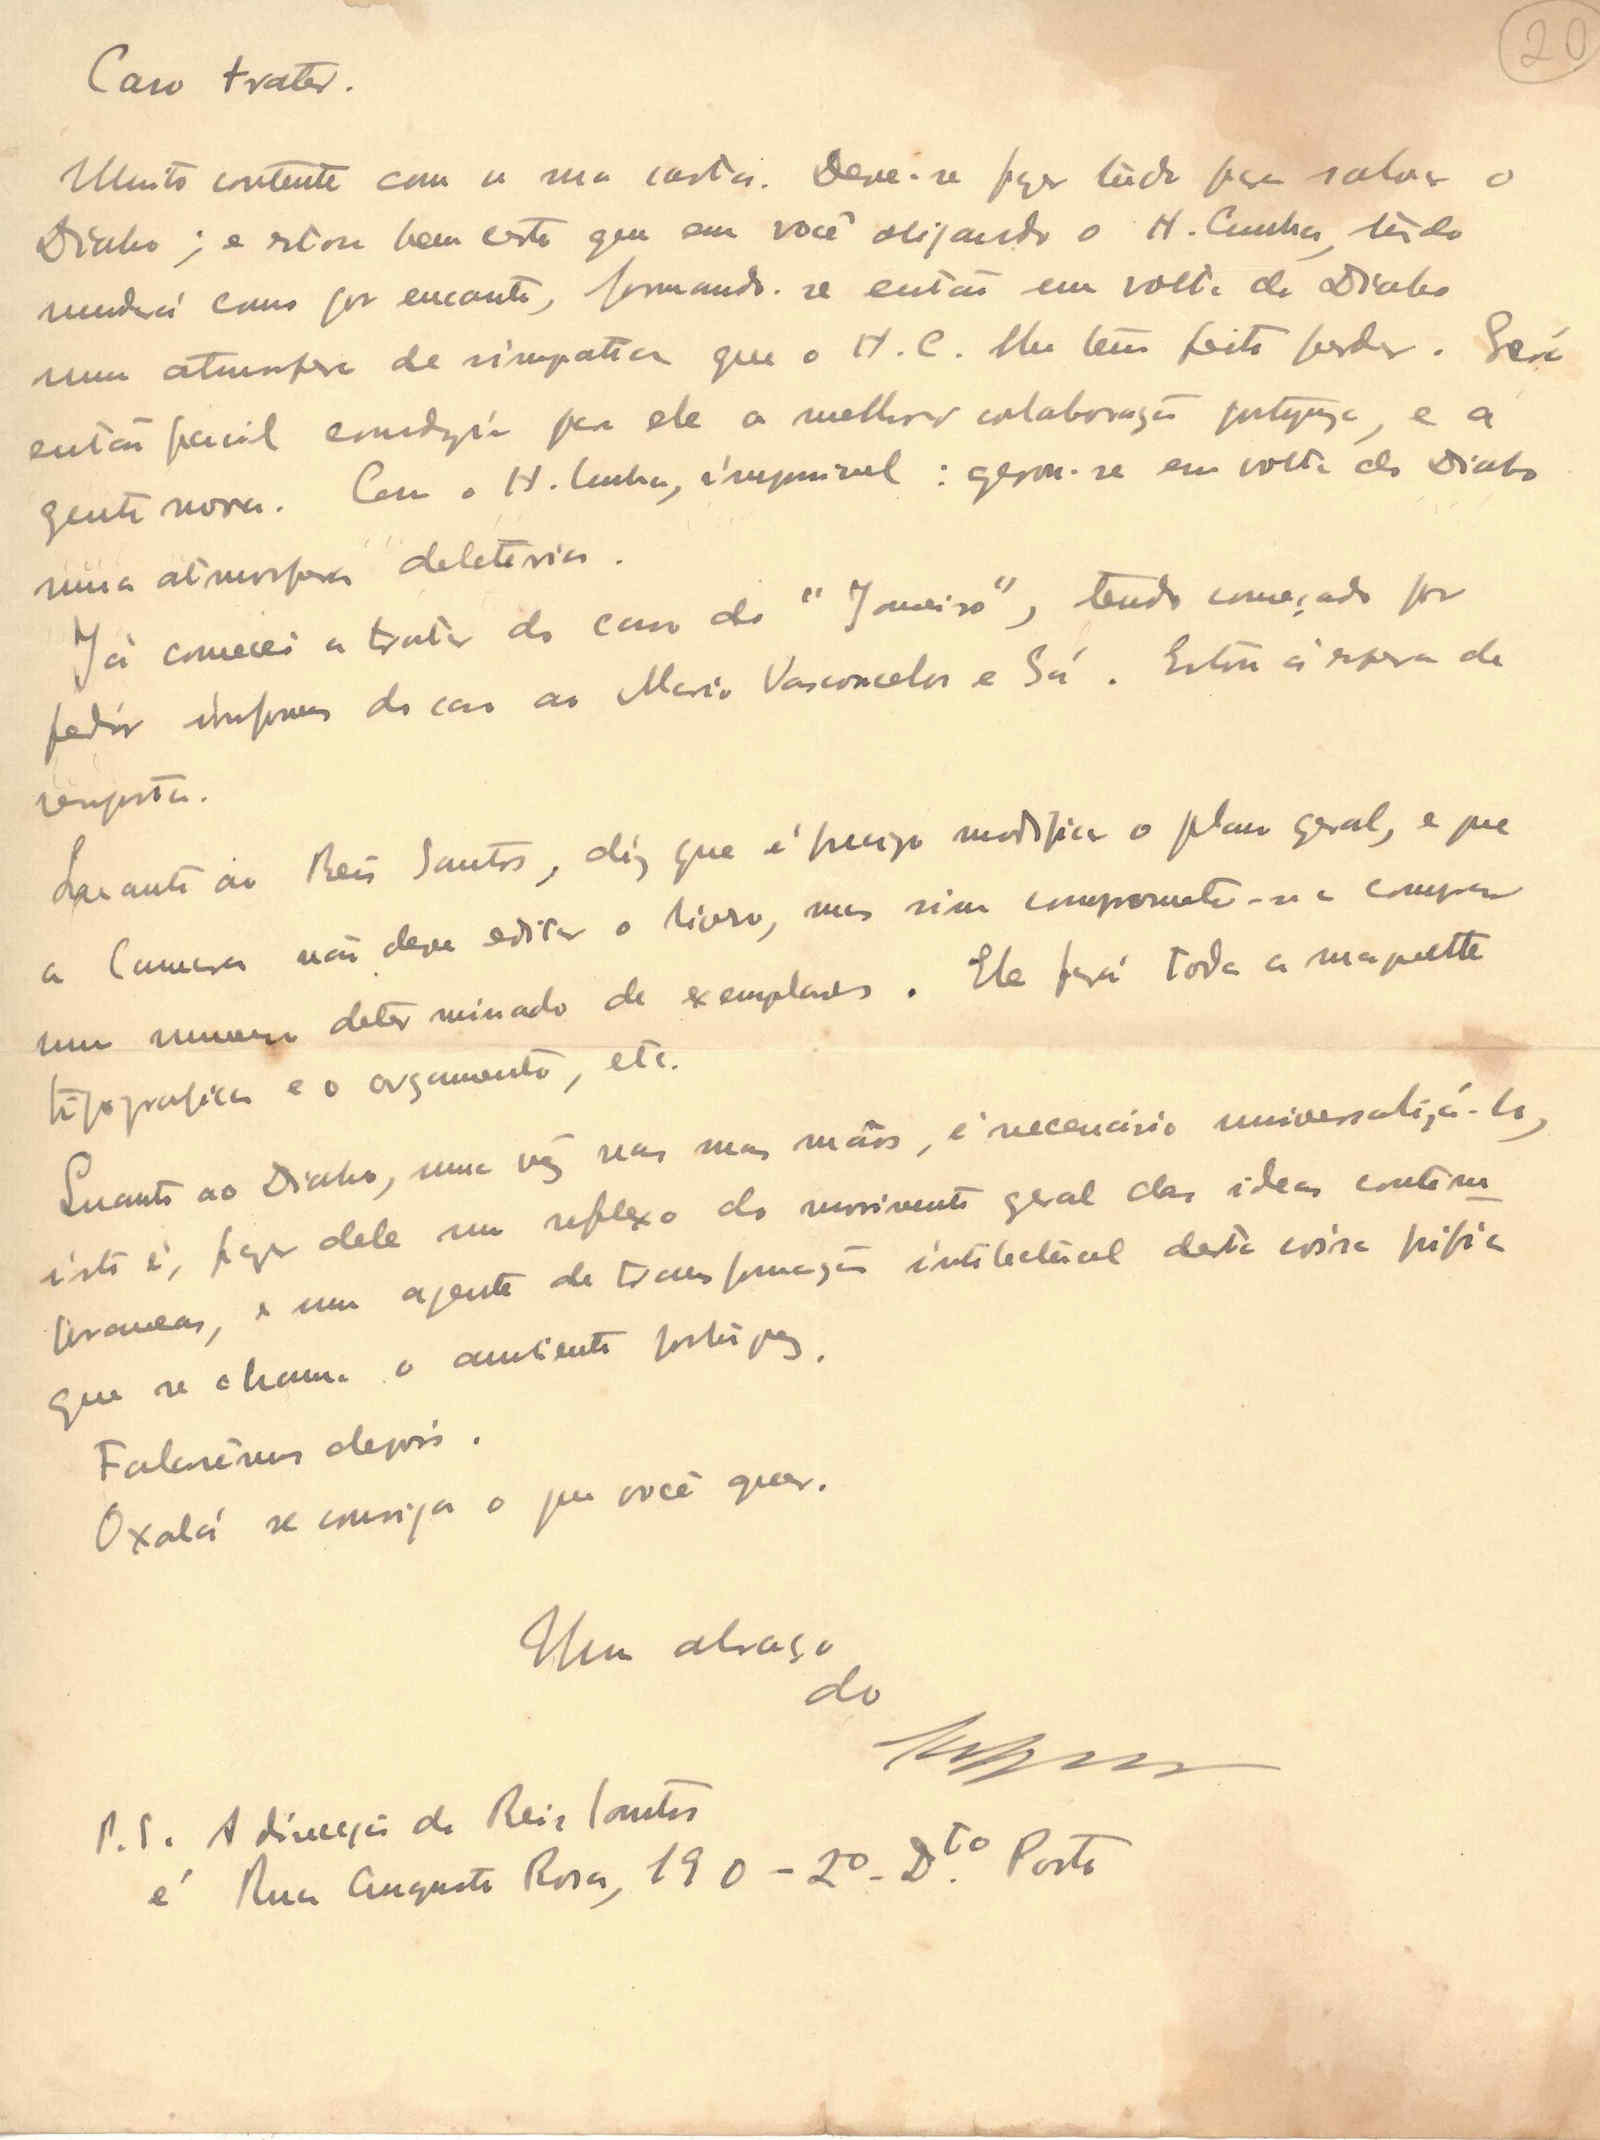 20
Caro frater.
Muito contente com a sua carta. Deve-se fazer tudo para salvar o
Diabo; e estou bem certo que em você alijando o H. Cunha, tudo
mudará como por encanto, formando-se então em volta do Diabo
uma atmosfera de simpatia que o H. C. lhe tem feito perder. Será
então facil conseguir para ele a melhor colaboração portugueza, e a
gente nova. Com o H. Cunha, impossivel: gerou-se em volta do Diabo
uma atmosfera deletéria.
Já comecei a tratar do caso do "Janeiro", tendo começado por
pedir informes do caso ao Mario Vasconcelos e Sá. Estou á espera de
resposta.
Quanto ao Reis Santos, diz que é preciso modificar o plano geral, e que
a Camara não deve editar o livro, mas sim comprometer-se a comprar
um numero determinado de exemplares. Ele fará toda a maquette
tipografica e o orçamento, etc.
Quanto ao Diabo, uma vez nas suas mãos, é necessário universalizá-lo,
isto é, fazer dele um reflexo do movimento geral das ideas contem_
poraneas, e um agente de transformação intelectual desta coisa pifia
que se chama o ambiente portuguez.
Falarêmos depois.
Oxalá se consiga o que você quer.
Um abraço
do
P.S. A direcção do Reis Santos
é Rua Augusto Rosa, 190 - 2º - Dto. Porto